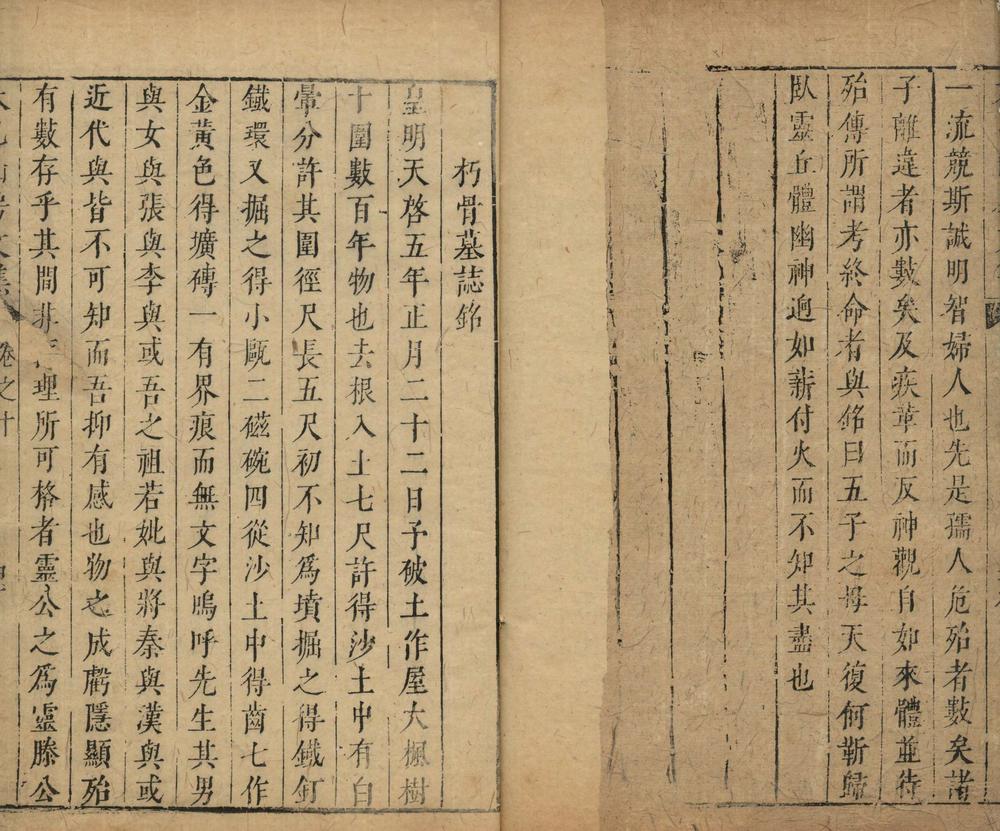 一流競斯誠明智婦人也先是孺人危殆者數矣諸
子離違者亦數矣及疾革而反神觀自如來體並待
殆傳所謂考終命者與銘曰五子之母天復何靳歸
臥靈丘體幽神逈如薪付火而不知其盡也
朽骨墓誌銘
皇明天啓五年正月二十二日予破土作屋大楓樹
十圍數百年物也去根入土七尺許得沙土中有白
暈分許其圍徑尺長五尺初不知爲墳掘之得鐵釘
鐵環又掘之得小甌二磁碗四從沙土中得齒七作
金黃色得壙磚一有界痕而無文字嗚呼先生其男
與女與張與李與或吾之祖若妣與將秦與漢與或
近代與皆不可知而吾抑有感也物之成虧隱顯殆
有數存乎其間非理所可格者靈公之爲靈滕公
文集 卷之十